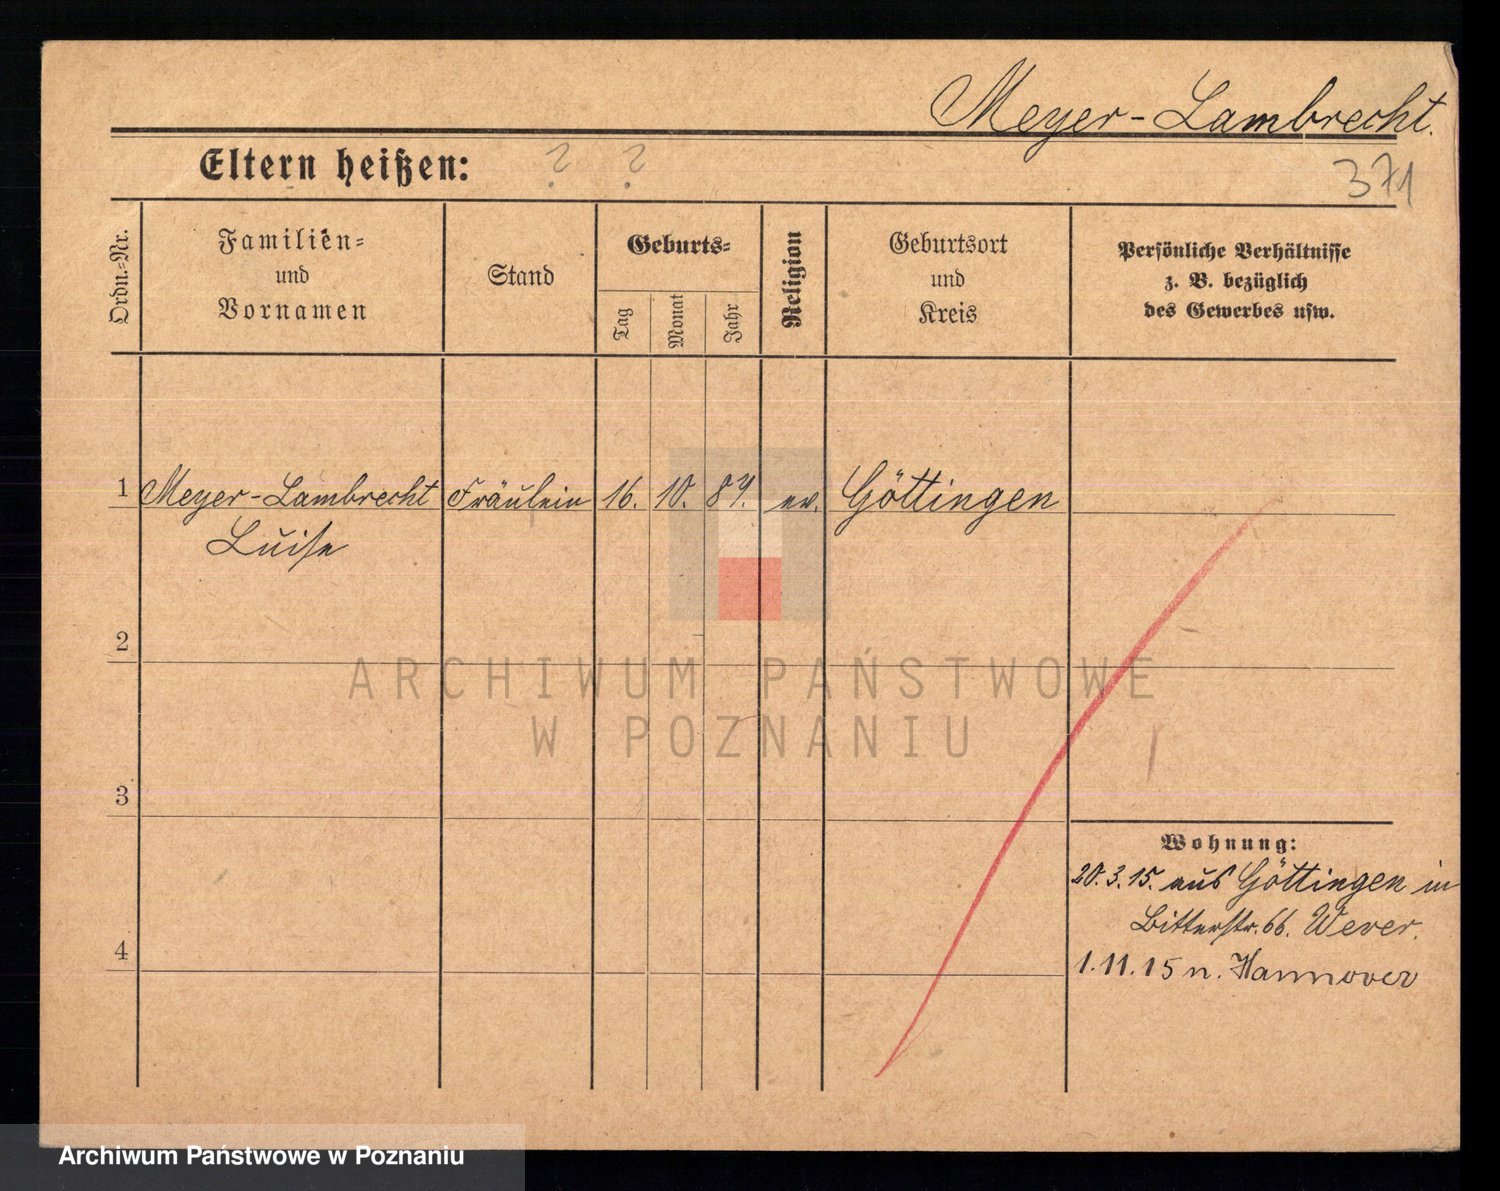 Meyer-Lambrecht.
Eltern heißen: ? ?
371
Ordn.-Nr.
Familien-
und
Vornamen
Stand
Geburts-
Tag
Monat
Jahr
Religion
Geburtsort
und
Kreis
Persönliche Verhältnisse
z. B. bezüglich
des Gewerbes usw.
1 Meyer-Lambrecht Fräulein 16. 10. 87. ev. Göttingen
Luise
2
ARCHIWUM PAŃSTWOWE
W POZNANIU
3
Wohnung:
20.3.15. aus Göttingen in
Bitterstr. 66. Wever.
4
1.11.15 n. Hannover
Archiwum Państwowe w Poznaniu